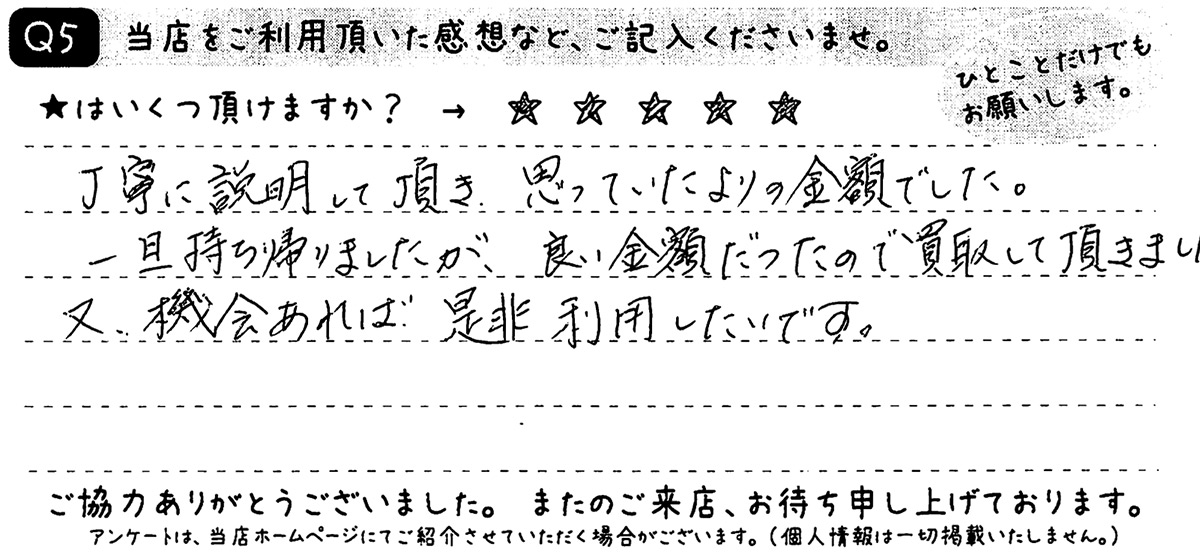 Q5 当店をご利用頂いた感想など、ご記入くださいませ。
ひとことだけでも
お願いします。
★はいくつ頂けますか？ → ☆ ☆ ☆ ☆ ☆
丁寧に説明して頂き、思っていたよりの金額でした。
一旦持ち帰りましたが、良い金額だったので買取して頂きまし
又、機会あれば是非利用したいです。
ご協力ありがとうございました。 またのご来店、お待ち申し上げております。
アンケートは、当店ホームページにてご紹介させていただく場合がございます。（個人情報は一切掲載いたしません。）